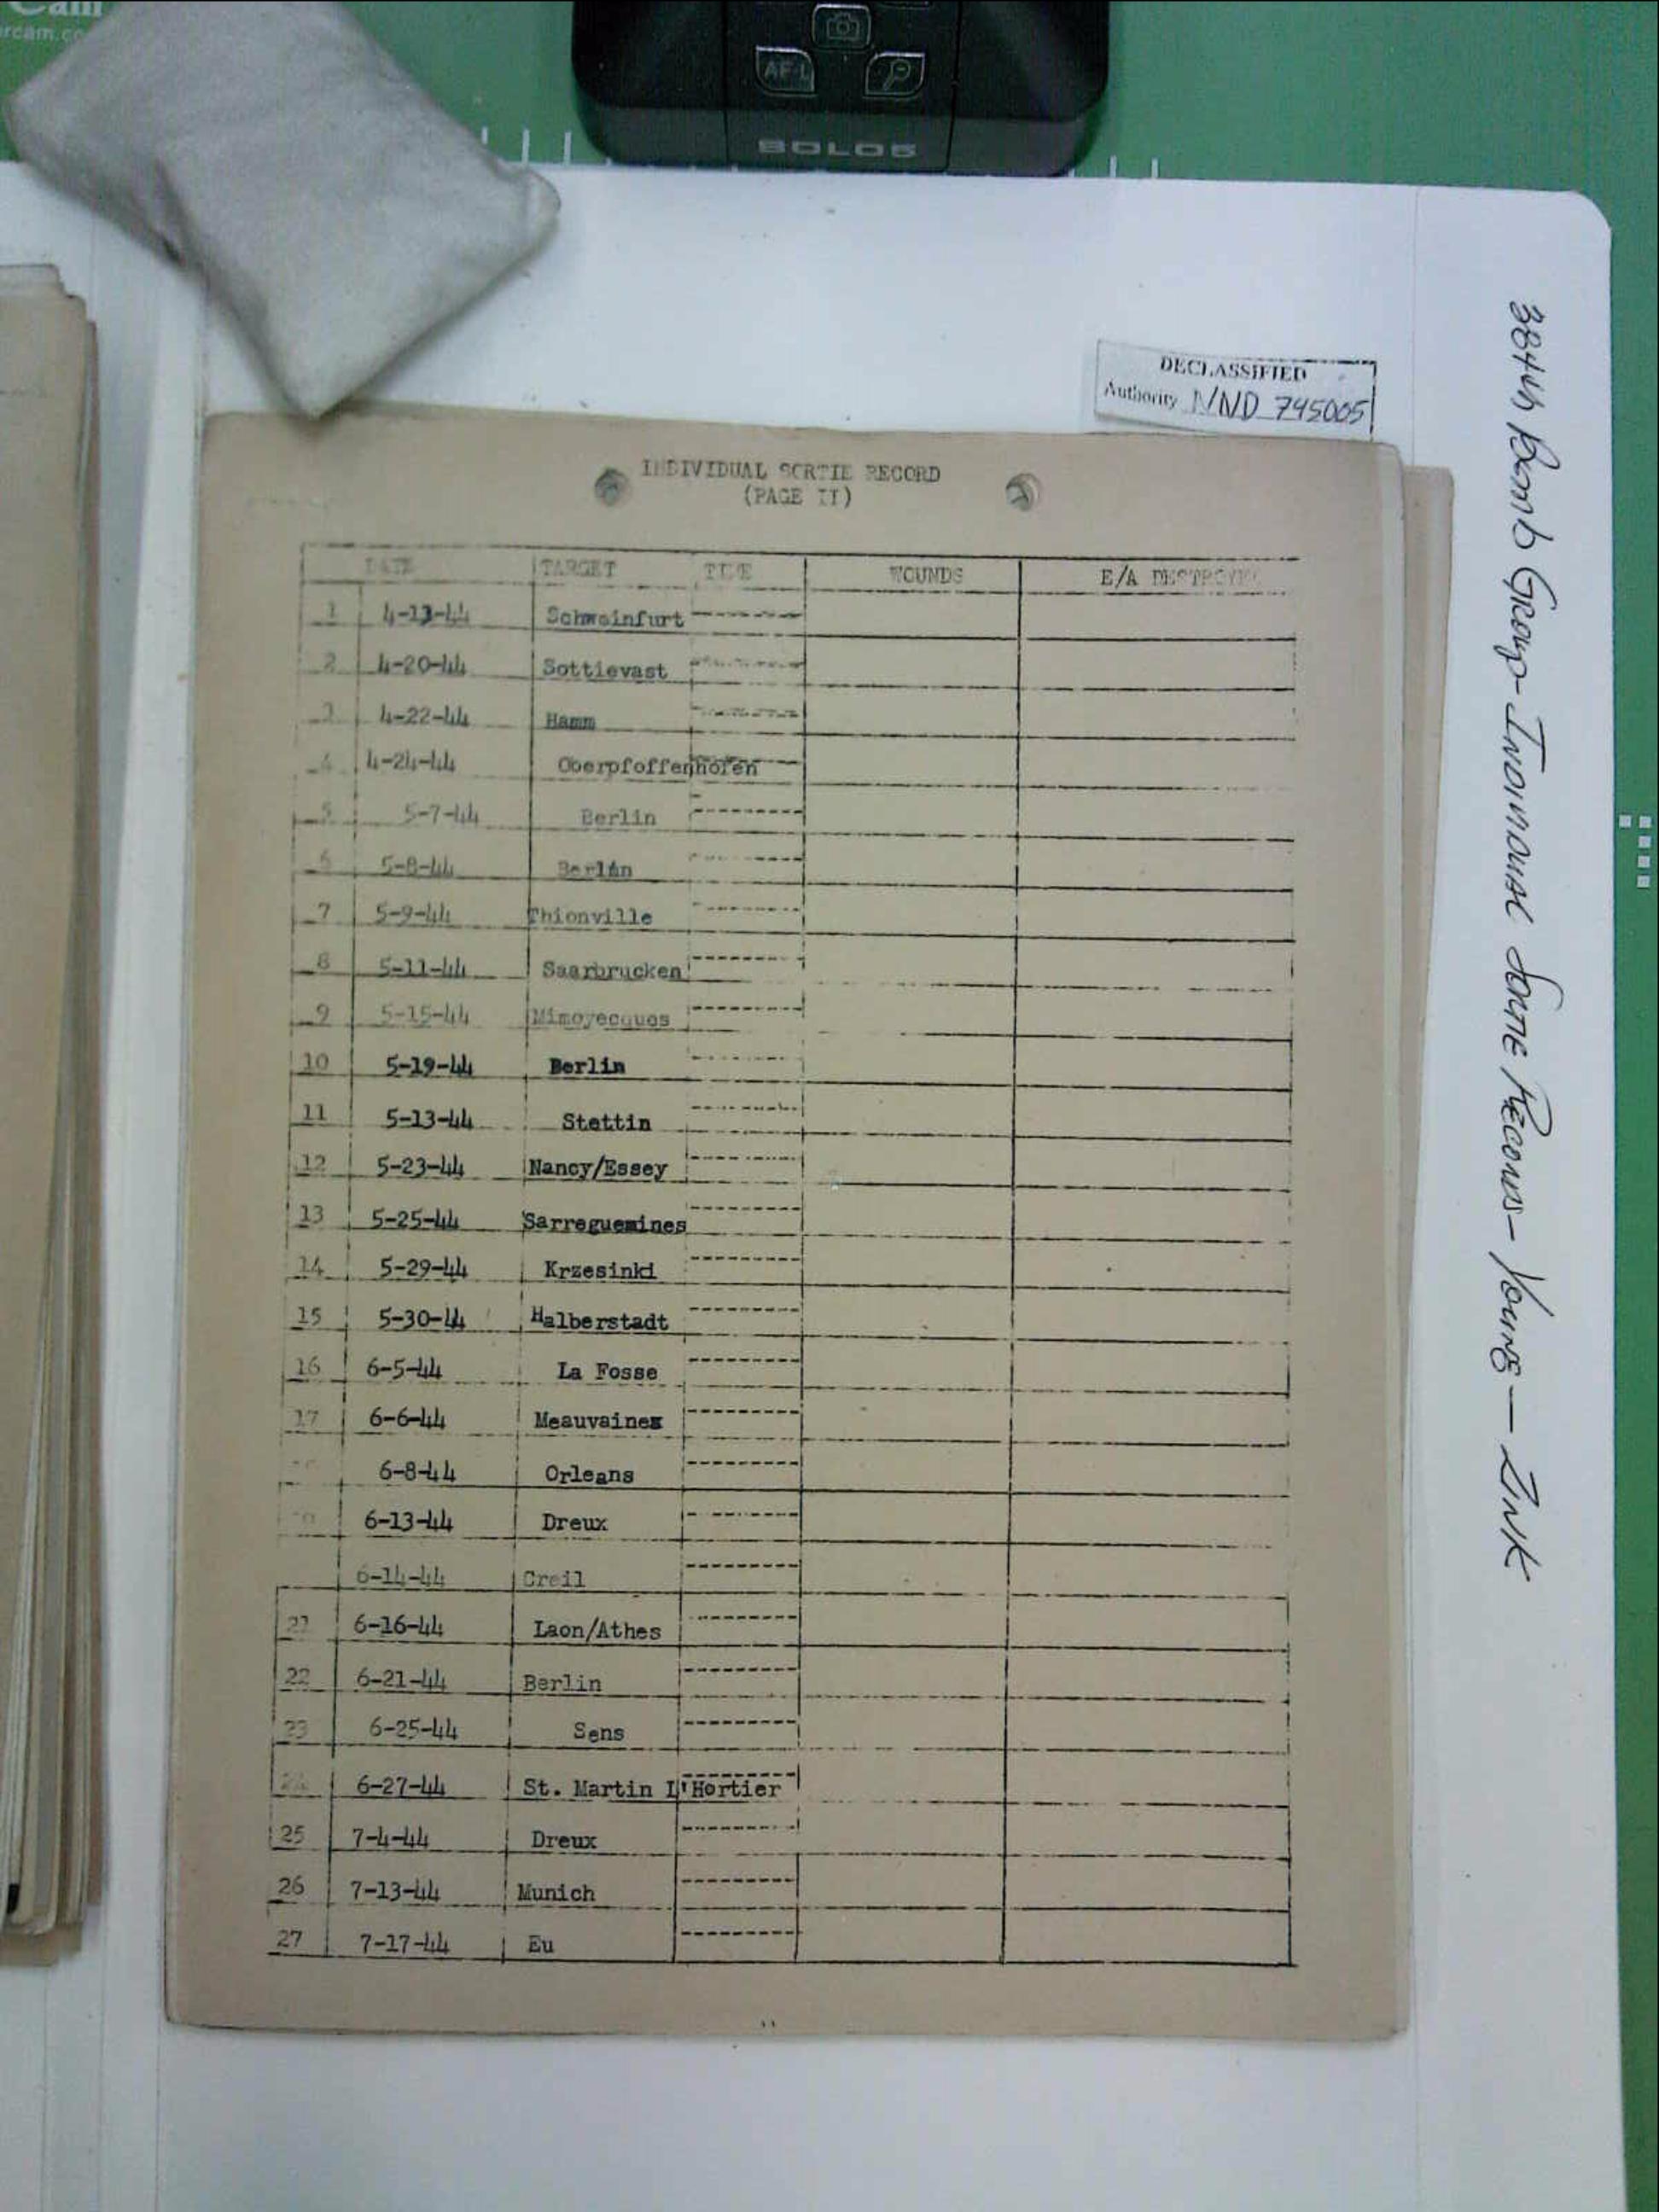 Cam
rcam.co
AF-L
SOLO5
DECLASSIFIED
Authority NND 745005
384th Bomb Group - Individual Sortie Records - Young - Zink
INDIVIDUAL SORTIE RECORD
(PAGE II)
DATE TARGET TIME WOUNDS E/A DESTROYED
1 4-13-44 Schweinfurt ---------
2 4-20-44 Sottievast ---------
3 4-22-44 Hamm ---------
4 4-24-44 Oberpfoffenhofen ---------
5 5-7-44 Berlin ---------
6 5-8-44 Berlin ---------
7 5-9-44 Thionville ---------
8 5-11-44 Saarbrucken ---------
9 5-15-44 Mimoyecques ---------
10 5-19-44 Berlin ---------
11 5-13-44 Stettin ---------
12 5-23-44 Nancy/Essey ---------
13 5-25-44 Sarreguemines ---------
14 5-29-44 Krzesinki ---------
15 5-30-44 Halberstadt ---------
16 6-5-44 La Fosse ---------
17 6-6-44 Meauvaines ---------
6-8-44 Orleans ---------
19 6-13-44 Dreux ---------
6-14-44 Creil ---------
21 6-16-44 Laon/Athes ---------
22 6-21-44 Berlin ---------
23 6-25-44 Sens ---------
24 6-27-44 St. Martin L'Hortier ---------
25 7-4-44 Dreux ---------
26 7-13-44 Munich ---------
27 7-17-44 Eu ---------